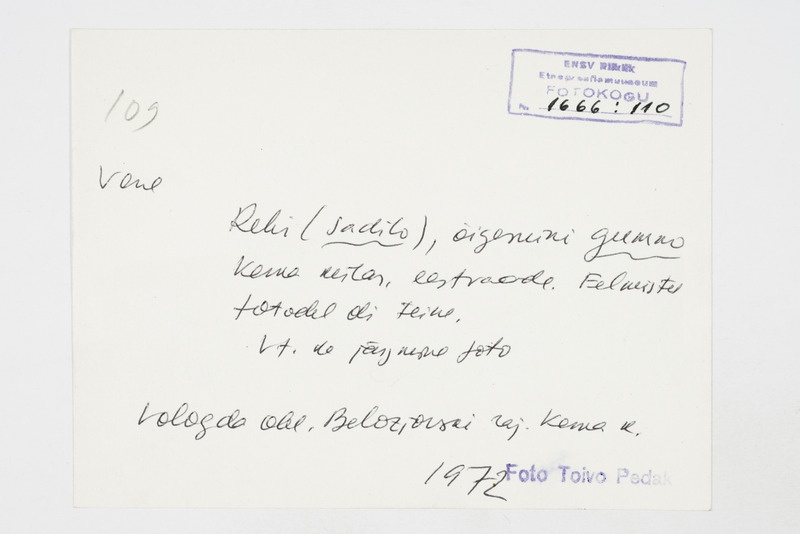 ENSV Riiklik
Etnograafiamuuseum
FOTOKOGU
№ 1666:110
109
Vene
Rehi (sadilo), õigemini gumno
Kema
Eelmistel
fotodel oli teine.
Vt. ka järgmine foto
Vologda obl. Belozjorski raj. Kema k.
1972
Foto Toivo Pedak